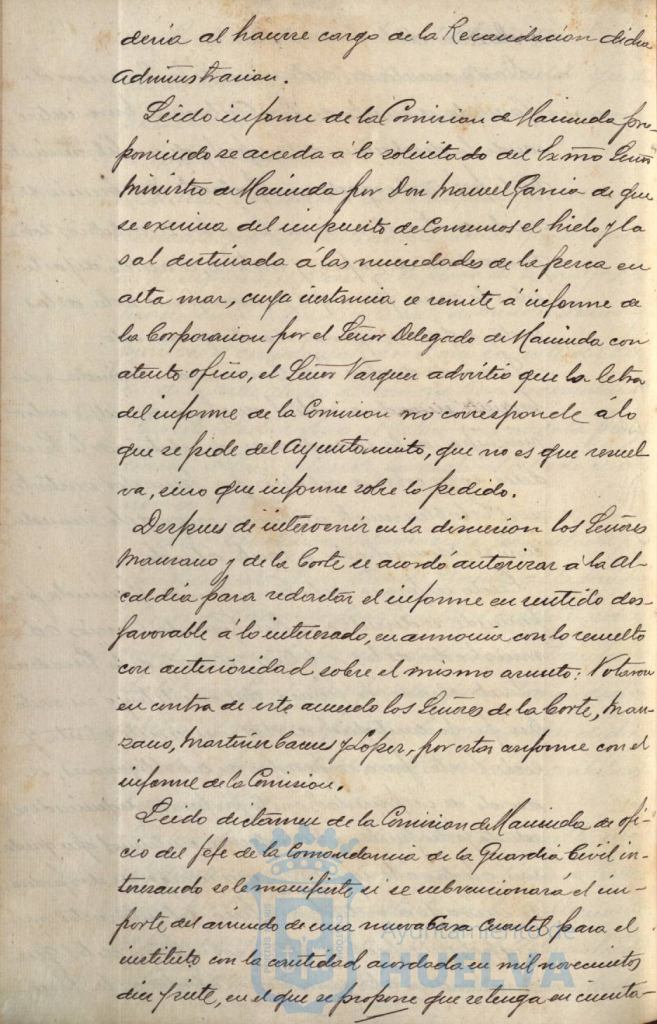 deria al hacerse cargo de la Recaudacion dicha
Administracion.
Leido informe de la Comision de Hacienda pro-
poniendo se acceda á lo solicitado del Exmo Señor
Ministro de Hacienda por Don Manuel Garcia de que
se exima del impuesto de Consumos el hielo y la
sal destinada á las necesidades de la pesca en
alta mar, cuya instancia se remite á informe de
la Corporacion por el Señor Delegado de Hacienda con
atento oficio, el Señor Vazquez advirtió que la letra
del informe de la Comision no corresponde á lo
que se pide del Ayuntamiento, que no es que resuel
va, sino que informe sobre lo pedido.
Despues de intervenir en la discusion los Señores
Manzano y de la Corte se acordó autorizar á la Al-
caldia para redactar el informe en sentido des-
favorable á lo interesado, en armonia con lo resuelto
con anterioridad sobre el mismo asunto: Votaron
en contra de este acuerdo los Señores de la Corte, Man-
zano, Martin y Lopez, por estar conforme con el
informe de la Comision.
Leido dictamen de la Comision de Hacienda de ofi-
cio del Jefe de la Comandancia de la Guardia Civil in-
teresando se le manifieste si se subvencionará el im-
porte del arriendo de una nueva Casa Cuartel para el
instituto con la cantidad acordada en mil novecientos
diez y siete, en el que se propone que se tenga en cuenta
Ayuntamiento de
HUELVA